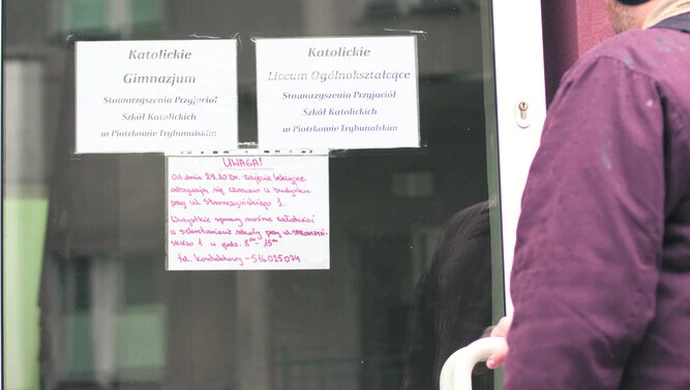 Katolickie
Gimnazjum
Stowarzyszenia Przyjaciół
Szkół Katolickich
w Piotrkowie Trybunalskim
Katolickie
Liceum Ogólnokształcące
Stowarzyszenia Przyjaciół
Szkół Katolickich
w Piotrkowie Trybunalskim
UWAGA!
Od dnia 29.10 br. zajęcia lekcyjne
odbywają się czasowo w budynku
przy ul. Stronczyńskiego 1.
Wszystkie sprawy można załatwiać
w sekretariacie szkoły przy ul. Stronczyń-
skiego 1 w godz. 8⁰⁰ - 15⁰⁰
tel. kontaktowy - 516025074